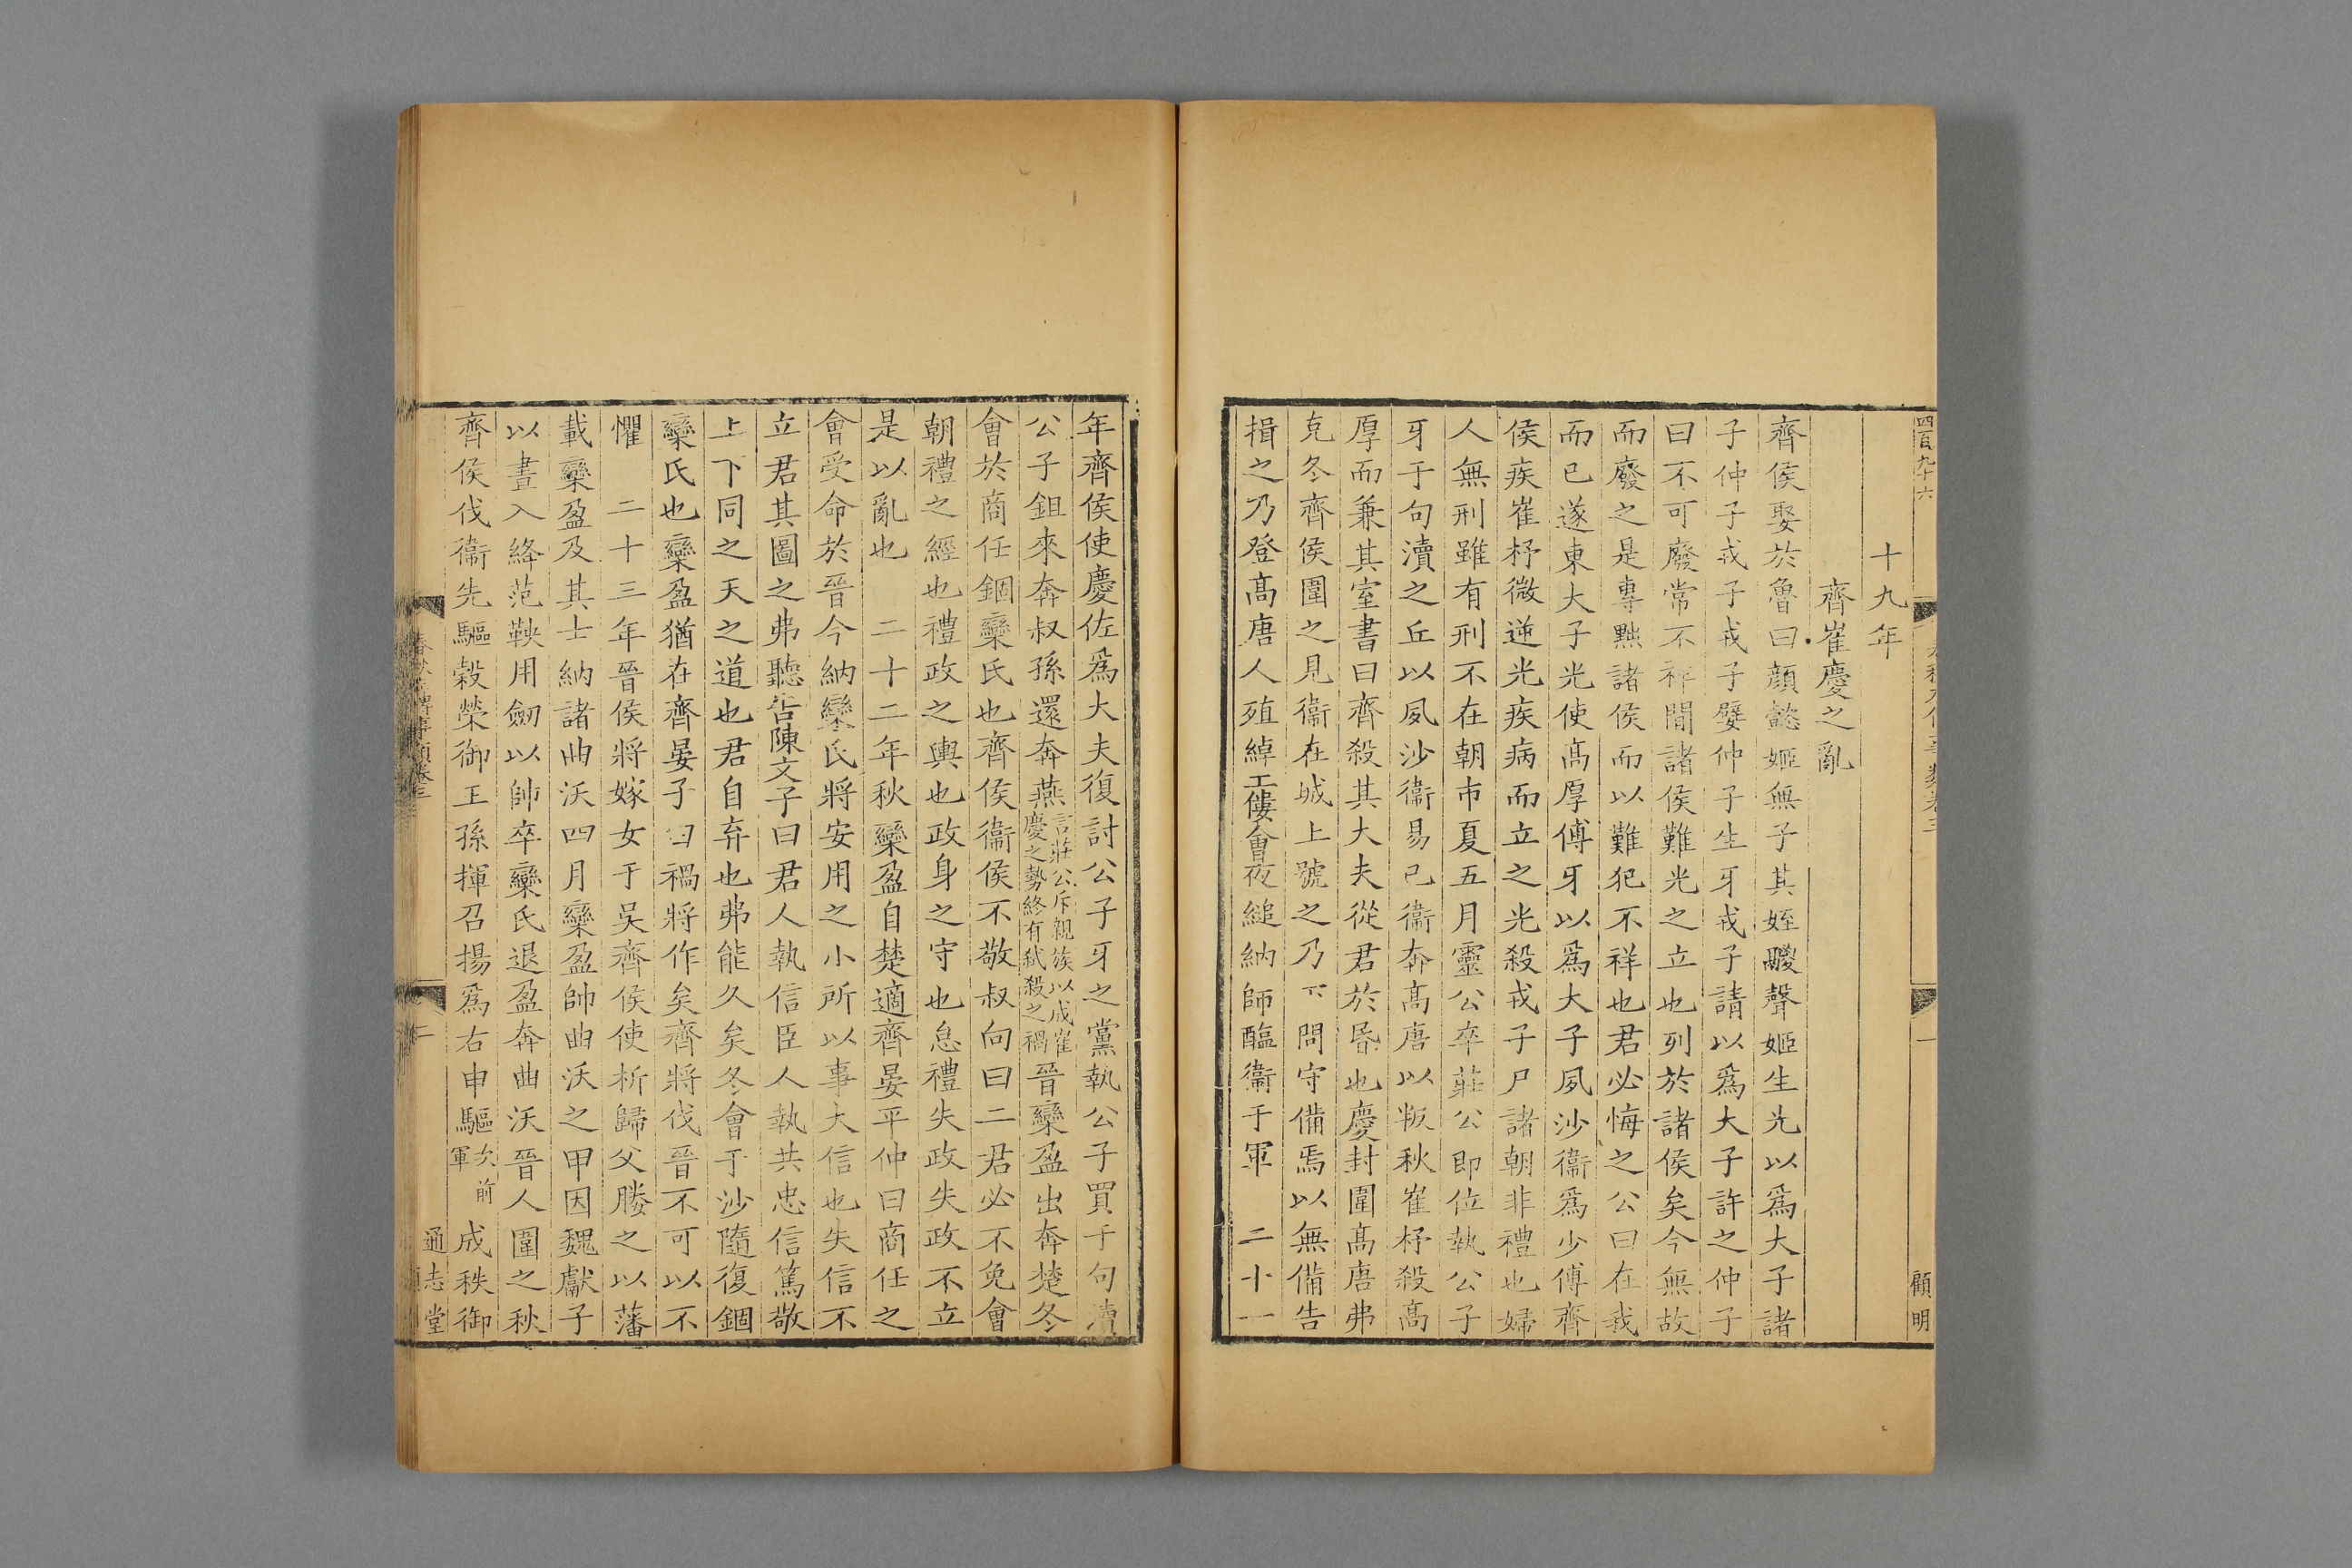 四百九十六
顧明
十九年
齊崔慶之亂
齊侯娶於魯曰顏懿姬無子其姪鬷聲姬生光以爲大子諸
子仲子戎子戎子嬖仲子生牙戎子請以爲大子許之仲子
曰不可廢常不祥間諸侯難光之立也列於諸侯矣今無故
而廢之是專黜諸侯而以難犯不祥也君必悔之公曰在我
而已遂東大子光使高厚傅牙以爲大子夙沙衞爲少傅齊
侯疾崔杼微逆光疾病而立之光殺戎子尸諸朝非禮也婦
人無刑雖有刑不在朝市夏五月靈公卒莊公即位執公子
牙于句瀆之丘以夙沙衞易己衞奔高唐以叛秋崔杼殺高
厚而兼其室書曰齊殺其大夫從君於昬也慶封圍高唐弗
克冬齊侯圍之見衞在城上號之乃下問守備焉以無備告
揖之乃登高唐人殖綽工僂會夜縋納師醢衞于軍 二十一
年齊侯使慶佐爲大夫復討公子牙之黨執公子買于句瀆
公子鉏來奔叔孫還奔燕言莊公斥親族以成崔慶之勢終有弒殺之禍晉欒盈出奔楚冬
會於商任錮欒氏也齊侯衞侯不敬叔向曰二君必不免會
朝禮之經也禮政之輿也政身之守也怠禮失政失政不立
是以亂也 二十二年秋欒盈自楚適齊晏平仲曰商任之
會受命於晉今納欒氏將安用之小所以事大信也失信不
立君其圖之弗聽告陳文子曰君人執信臣人執共忠信篤敬
上下同之天之道也君自弃也弗能久矣冬會于沙隨復錮
欒氏也欒盈猶在齊晏子曰禍將作矣齊將伐晉不可以不
懼 二十三年晉侯將嫁女于吳齊侯使析歸父媵之以藩
載欒盈及其士納諸曲沃四月欒盈帥曲沃之甲因魏獻子
以晝入絳范鞅用劒以帥卒欒氏退盈奔曲沃晉人圍之秋
齊侯伐衞先驅穀榮御王孫揮召揚爲右申驅次前軍成秩御
通志堂